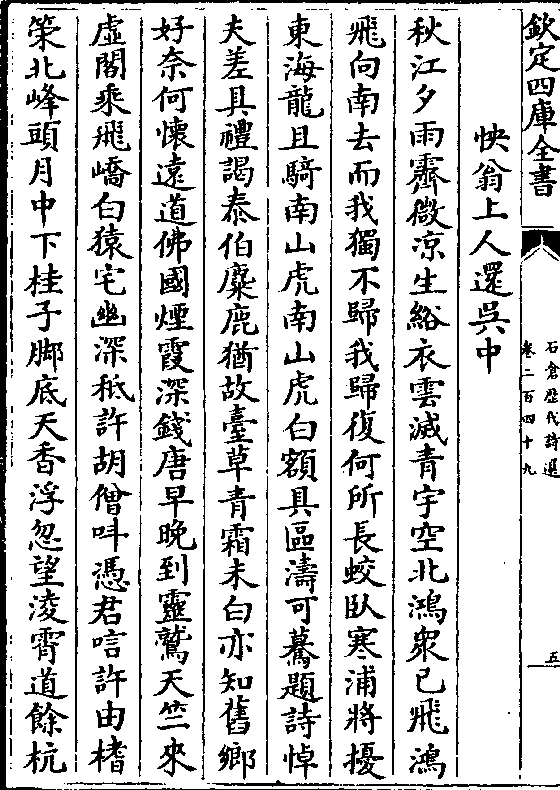 欽定四庫全書
石倉歷代詩選
卷二百四十九
五
怏翁上人還吳中
秋江夕雨霽微凉生綌衣雲滅青宇空北鴻衆已飛鴻
飛向南去而我獨不歸我歸復何所長蛟臥寒浦將擾
東海龍且騎南山虎南山虎白額具區濤可驀題詩悼
夫差具禮謁泰伯麋鹿猶故臺草青霜未白亦知舊鄉
好奈何懷遠道佛國煙霞深錢唐早晚到靈鷲天竺來
虛閣乘飛嶠白猿宅幽深秪許胡僧呌憑君唁許由楮
策北峰頭月中下桂子脚底天香浮忽望淩霄道餘杭